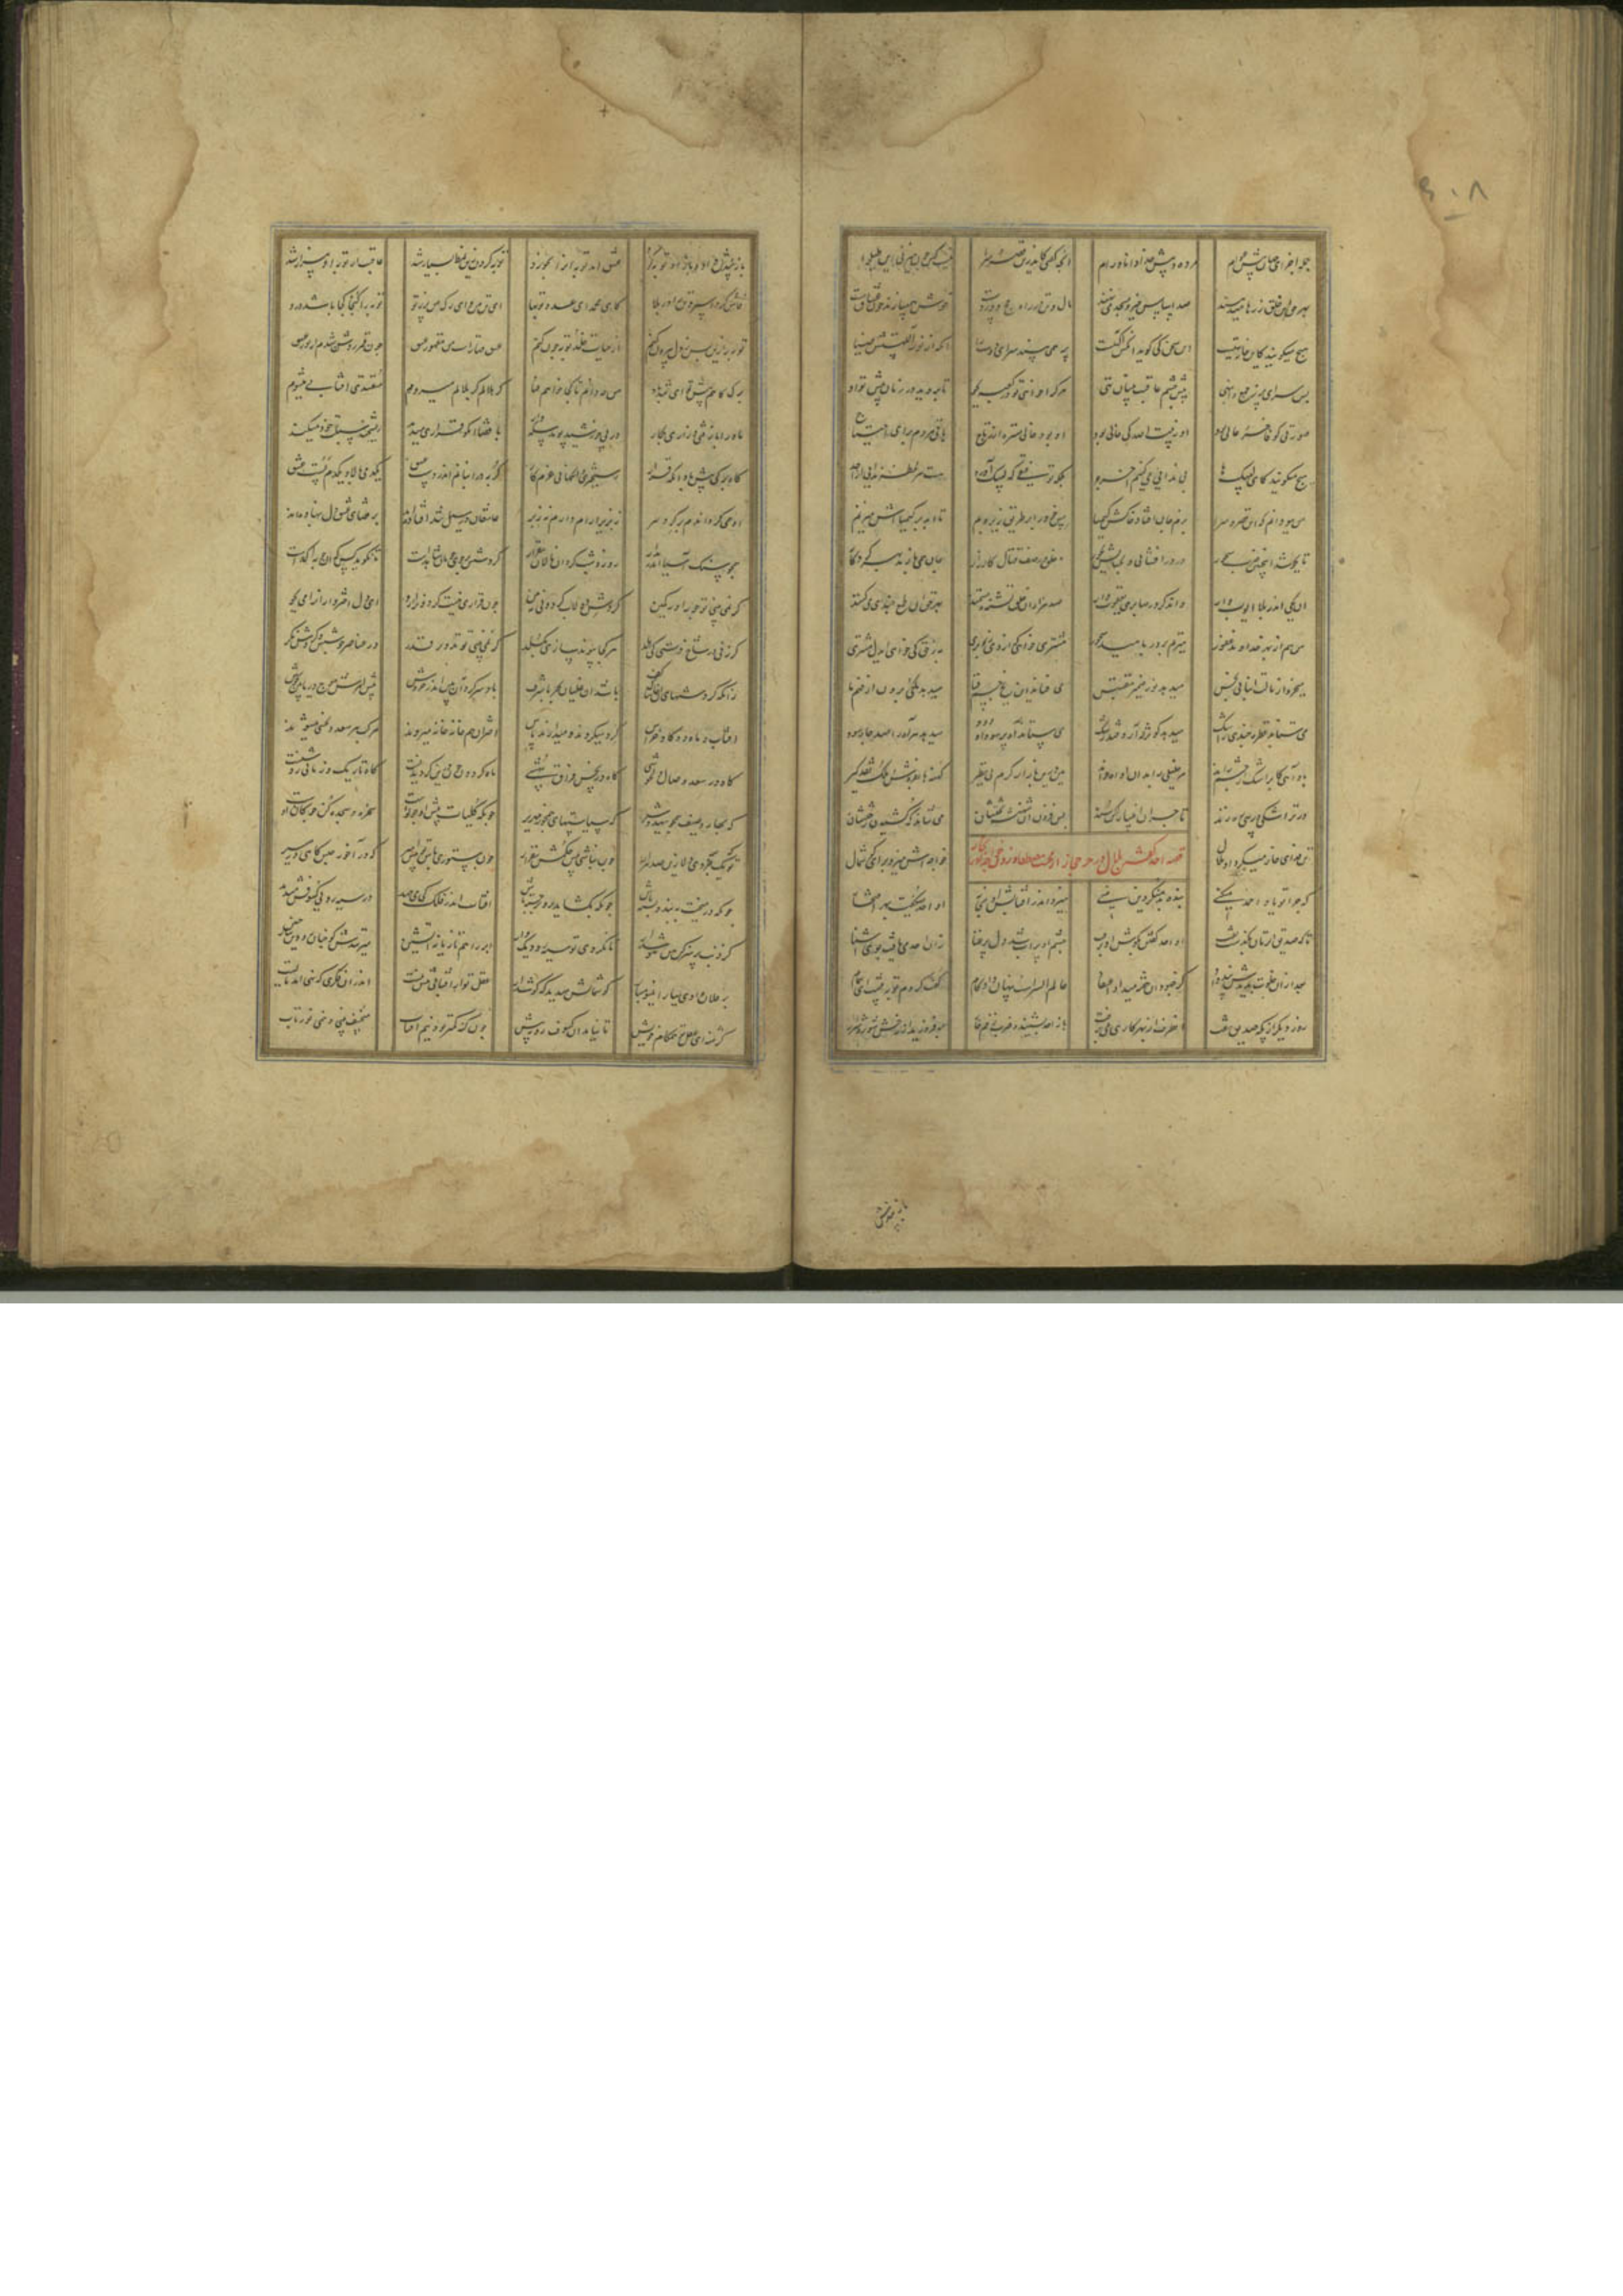 جمله اجزای جهان پیش عوام مرده و پیش خدا دانا و رام آنچه گفتی کاندرین قصر و سرا نیست کس چون میزنی این طبل را
بهر حق این خلق زرها میدهند صد اساس خیر و مسجد می نهند مال و تن در راه حج دوردست خوش همی بازند چون عشاق مست
هیچ میگویند کان خانه تهیست این سخن کی گوید آنکس کاگهیست پر همی بیند سرای دوست را آنکه از نور الهستش ضیا
بس سرای پر ز جمع و انبهی پیش چشم عاقبت بینان تهی هر کرا خواهی تو در کعبه بجو تا بروید در زمان پیش تو او
صورتی کو فاخر و عالی بود او ز بیت الله کی خالی بود او بود منزه از رتاج باقی مردم برای احتیاج
هیچ میگویند کاین لبیکها بی ندایی میکنیم آخر چرا بلکه توفیقی که لبیک آورد هست هر لحظه ندایی از احد
من ببو دانم که این قصر و سرا بزم جان افتاد و خاکش کیمیا مس خود را بر طریق زیر و بم تا ابد بر کیمیااش میزنم
تا بجوشد اینچنین ضرب سحور در درافشانی و بخشش بحور خلق در صف قتال کارزار جان همی بازند بهر کردگار
آن یکی اندر بلا ایوب وار واندگر در صابری یعقوب وار صد هزاران خلق تشنه مستمند بهر حق از طمع جهدی میکنند
من هم از بهر خداوند غفور میزنم بر در بامیدش سحور مشتری خواهی که از وی زر بری به ز حق کی ای دل مشتری
میخرد از مالت انبانی نجس میدهد نور ضمیر مقتبس می ستاند این یخ جسم فنا میدهد ملکی برون از وهم ما
می ستاند قطره چندی ز اشک میدهد کوثر که آرد قند رشک می ستاند آه پر سودا و دود میدهد هر آه را صد جاه سود
باد آهی کابر اشک چشم راند مر خلیلی را بدان اواه خواند هین درین بازار گرم بی نظیر کهنه ها بفروش و ملک نقد گیر
ور ترا شکی و ریبی ره زند تاجران انبیا را کن سند بس فزون آن شهنشه بختشان می نتاند که کشیدن رختشان
قصه احد احد گفتن بلال در حر حجاز از محبت مصطفی
تن فدای خار میکرد آن بلال خواجه اش میزد برای گوشمال
که چرا تو یاد احمد میکنی بنده بد منکر دین منی میزد اندر آفتابش او بخار او احد میگفت بهر افتخار
تا که صدیق آن طرف بر میگذشت آن احد گفتن بگوش او برفت چشم او پر آب شد دل پر عنا زان احد می یافت بوی آشنا
بعد از آن خلوت بدیدش پند داد کز جهودان خفیه میدار اعتقاد عالم السرست پنهان دار کام گفت کردم توبه پیشت ای همام
روز دیگر از پگه صدیق تفت آن طرف از بهر کاری می برفت باز احد بشنید و ضرب زخم خار برفروزید از دلش سوز و شرار
باز پندش
باز پندش داد و باز او توبه کرد عشق آمد توبه او را بخورد توبه کردن زین نمط بسیار شد عاقبت از توبه او بیزار شد
فاش کرد اسپرد تن را در بلا کای محمد ای عدو توبها ای تن من وای رگ من پر ز تو توبه را گنجا کجا باشد درو
توبه را زین پس ز دل بیرون کنم از حیات خلد توبه چون کنم عشق قهارست و من مقهور عشق چون قمر روشن شدم از نور عشق
برگ کاهم پیش تو ای تندباد من چه دانم تا کجا خواهم فتاد گر هلالم گر بلالم میدوم مقتدی آفتابت میشوم
ماه را با زفتی و زاری چه کار در پی خورشید پوید سایه وار با قضا هر کو قراری میدهد ریشخند سبلت خود میکند
کاه برگی پیش باد آنگه قرار رستخیزی وانگهانی عزم کار گربه در انبانم اندر دست عشق یکدمی بالا و یکدم پست عشق
او همی گرداندم بر گرد سر نه بزیر آرام دارم نه زبر عاشقان در سیل تند افتاده اند بر قضای عشق دل بنهاده اند
همچو سنگ آسیا اندر مدار روز و شب گردان و نالان بی قرار گردشش بر جوی جویان شاهدست تا نگوید کس که آن جو راکدست
گر نمی بینی تو جو را در کمین گردش دولاب گردونی ببین چون قراری نیست گردون را ازو ای دل اختروار آرامی مجو
گر زنی در شاخ دستی کی هلد هر کجا پیوند سازی بگسلد گر نمی بینی تو تدویر قدر در عناصر جوشش و گردش نگر
زانکه گردشهای آن خاشاک و کف باشد از غلیان بحر با شرف باد سرگردان ببین اندر خروش پیش امرش موج دریا بین بجوش
آفتاب و ماه دو گاو خراس گرد میگردند و میدارند پاس اختران هم خانه خانه میدوند مرکب هر سعد و نحسی میشوند
گاه در سعد و وصال و دلخوشی گاه در نحس و فراق و بیهشی ماه گردون چون درین گردیدنست گاه تاریک و زمانی روشنست
گه بهار و صیف همچون شهد و شیر گه سیاستهای زمهریر چونکه کلیات پیش او چو گوست سخره و سجده کن چوگان اوست
تو که یک جزوی دلا زین صد هزار چون نباشی پیش حکمش بی قرار چون ستوری باش در حکم امیر گه در آخور حبس گاهی در مسیر
چونکه در میخت ببندد بسته باش چونکه بگشاید برو برجسته باش آفتاب اندر فلک کژ می جهد در سیه رویی کسوفش میدهد
کز ذنب پرهیز کن هین هوش دار تا نگردی تو سیه رو دیگ وار ابر را هم تازیانه آتشین میزنندش کانچنان رو نه چنین
بر فلان وادی ببار این سو مبار گوشمالش میدهد که گوش دار عقل تو از آفتابی بیش نیست اندر آن فکری که نهی آمد مایست
کژ منه ای عقل تو هم گام خویش تا نیاید آن کسوف رو به پیش چون گنه کمتر بود نیم آفتاب منکسف بینی و نیمی نورتاب